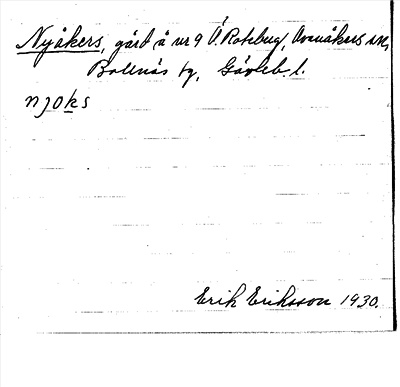 Nyåkers, gård å nr 9 Ö. Rotebug, Ovanåkers sn,
Bollnäs tg, Gävleb. l.
njoks
Erik Eriksson 1930.